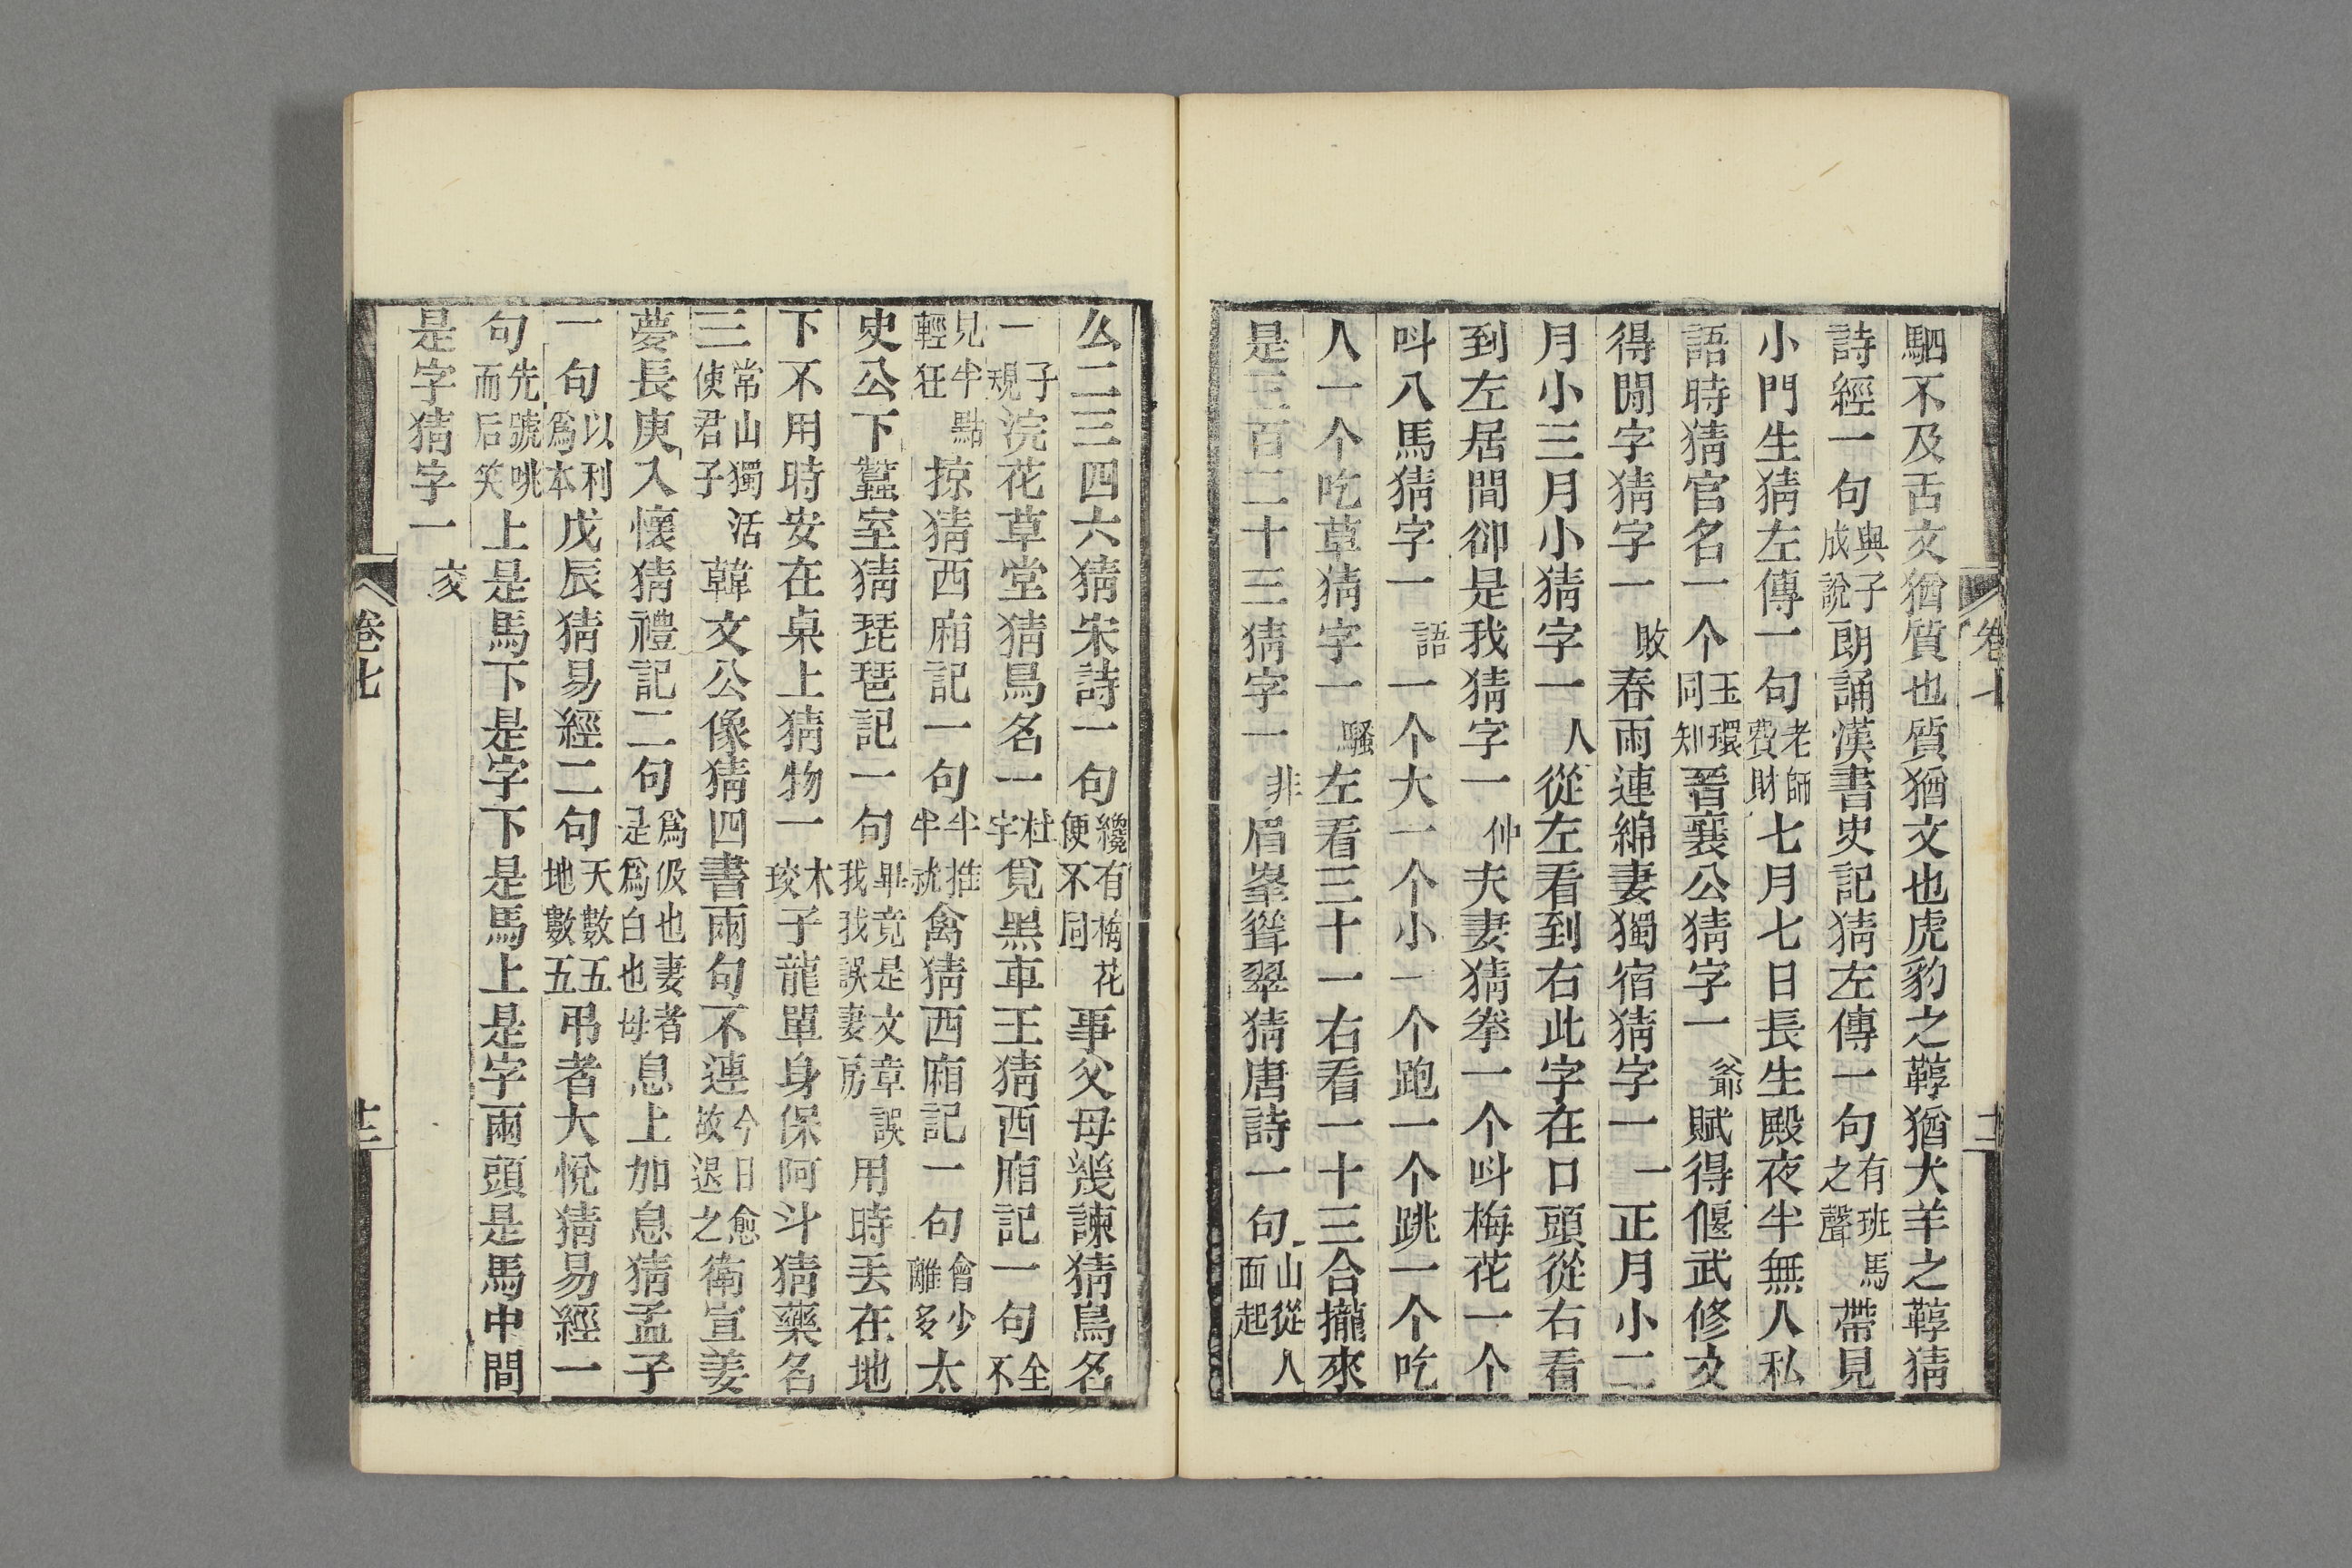 駟不及舌文猶質也質猶文也虎豹之鞟猶犬羊之鞟猜
詩經一句與子成說朗誦漢書史記猜左傳一句有班馬之聲帶見
小門生猜左傳一句老師費財七月七日長生殿夜半無人私
語時猜官名一个玉環同知晉襄公猜字一爺賦得偃武修文
得閒字猜字一敗春雨連綿妻獨宿猜字一一正月小二
月小三月小猜字一人從左看到右此字在口頭從右看
到左居間卻是我猜字一仲夫妻猜拳一个叫梅花一个
叫八馬猜字一語一个大一个小一个跑一个跳一个吃
人一个吃草猜字一騷左看三十一右看一十三合攏來
是三百二十三猜字一非眉峯聳翠猜唐詩一句山從人面起
么二三四六猜宋詩一句纔有梅花便不同事父母幾諫猜鳥名
一子規浣花草堂猜鳥名一杜宇覓黑車王猜西廂記一句全不
見半點輕狂掠猜西廂記一句半推半就禽猜西廂記一句會少離多太
史公下蠶室猜琵琶記一句畢竟是文章誤我我誤妻房用時丟在地
下不用時安在桌上猜物一木珓子龍單身保阿斗猜藥名
三常山獨活使君子韓文公像猜四書兩句不連今日愈故退之衛宣姜
夢長庚入懷猜禮記二句爲伋也妻者是爲白也母息上加息猜孟子
一句以利爲本戊辰猜易經二句天數五地數五弔者大悅猜易經一
句先號咷而后笑上是馬下是字下是馬上是字兩頭是馬中間
是字猜字一
卷七